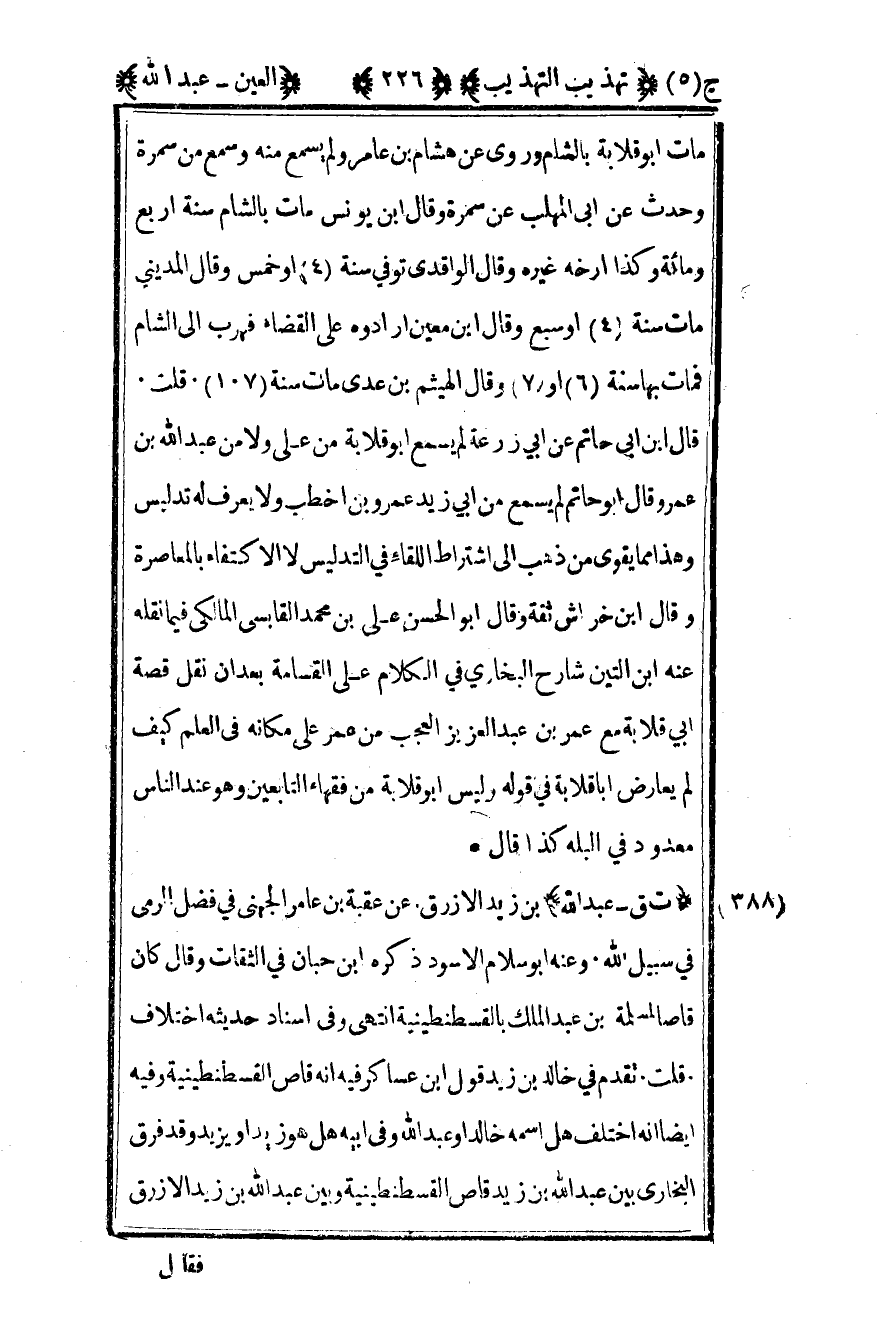 ج(٥) ﴿ تهذيب التهذيب ﴾ ﴿ ٢٢٦ ﴾ ﴿ العين - عبد الله ﴾
مات ابوقلابة بالشام وروى عن هشام بن عامر ولم يسمع منه وسمع من سمرة
وحدث عن ابى المهلب عن سمرة وقال ابن يونس مات بالشام سنة اربع
ومائة وكذا ارخه غيره وقال الواقدى توفي سنة (٤) اوخمس وقال المديني
مات سنة (٤) اوسبع وقال ابن معين ارادوه على القضاء فهرب الى الشام
فمات بها سنة (٦) او (٧) وقال الهيثم بن عدى مات سنة (١٠٧) . قلت .
قال ابن ابى حاتم عن ابي زرعة لم يسمع ابوقلابة من علي ولا من عبد الله بن
عمرو قال ابوحاتم لم يسمع من ابي زيد عمرو بن اخطب ولا يعرف له تدليس
وهذا مما يقوى من ذهب الى اشتراط اللقاء في التدليس لا الاكتفاء بالمعاصرة
وقال ابن خراش ثقة وقال ابو الحسن علي بن محمد القابسى المالكي فيما نقله
عنه ابن التين شارح البخاري في الكلام على القسامة بعد ان نقل قصة
ابي قلابة مع عمر بن عبد العزيز العجب من عمر على مكانه فى العلم كيف
لم يعارض ابا قلابة في قوله وليس ابوقلابة من فقهاء التابعين وهو عند الناس
معدود في البله كذا قال •
(٣٨٨) ﴿ ت ق - عبد الله ﴾ بن زيد الازرق. عن عقبة بن عامر الجهنى في فضل الرمى
في سبيل الله . وعنه ابو سلام الاسود ذكره ابن حبان في الثقات وقال كان
قاصا لمسلمة بن عبد الملك بالقسطنطينية انتهى وفى اسناد حديثه اختلاف
. قلت . تقدم في خالد بن زيد قول ابن عساكر فيه انه قاص القسطنطينية وفيه
ايضا انه اختلف هل اسمه خالد او عبد الله وفى ابيه هل هو زيد او يزيد وقد فرق
البخارى بين عبد الله بن زيد قاص القسطنطينية وبين عبد الله بن زيد الازرق
فقال